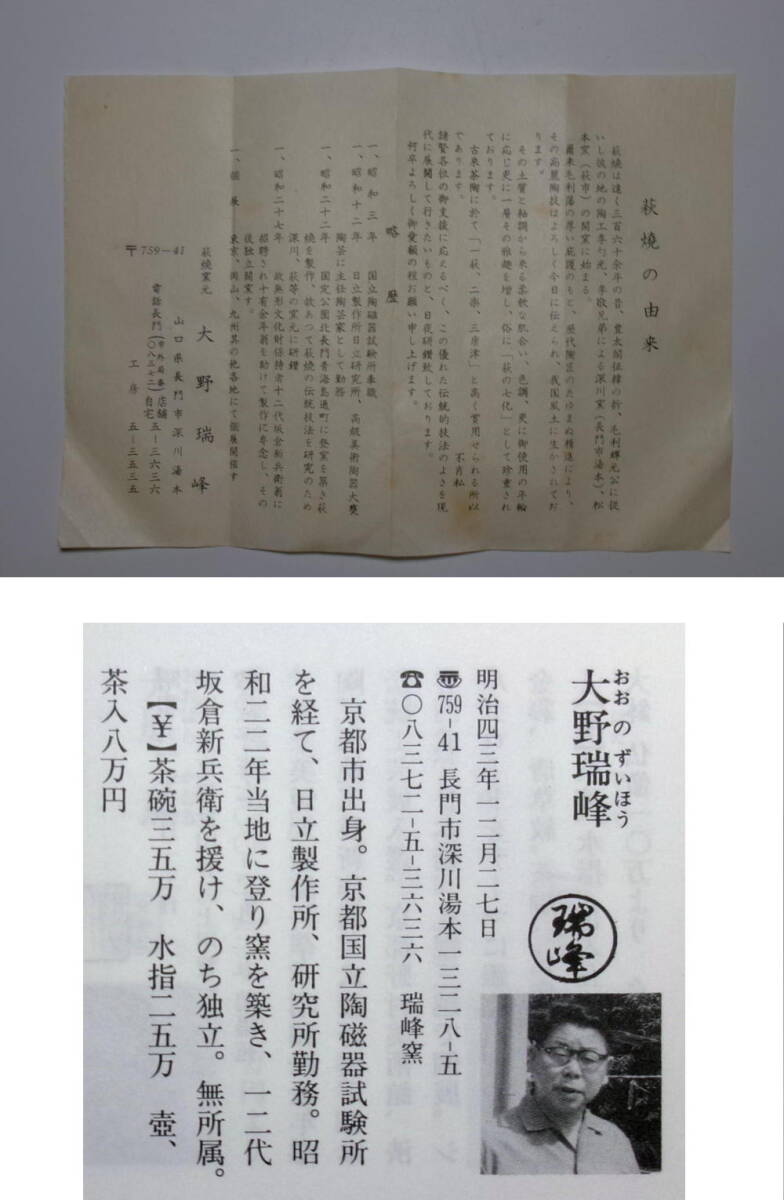 萩焼の由来
萩焼は遠く三百六十余年の昔、豊太閤征韓の折、毛利輝元公に従
いし彼の地の陶工李勺光、李敬兄弟による深川窯(長門市湯本)、松
本窯(萩市)の開窯に始まる。
爾来毛利藩の厚い庇護のもと、歴代陶匠のたゆまぬ精進により、
その高麗陶技はよろしく今日に伝えられ、我国風土に生かされてお
ります。
その土質と釉調から来る柔軟な肌合い、色調、更に御使用の年輪
に応じ更に一層その雅趣を増し、俗に「萩の七化」として珍重され
ております。
古来茶陶に於て「一萩、二楽、三唐津」と高く賞用せられる所以
であります。 不肖私
諸賢各位の御支援に応えるべく、この優れた伝統的技法のよさを現
代に展開して行きたいものと、日夜研鑽致しております。
何卒よろしく御愛顧の程お願い申し上げます。
略歴
一、昭和三年 国立陶磁器試験所奉職
一、昭和十二年 日立製作所日立研究所、高級美術陶器大甕
陶芸に主任陶芸家として勤務
一、昭和二十二年 国定公園北長門青海島通町に登窯を築き萩
焼を製作、故あつて萩焼の伝統技法を研究のため
深川、萩等の窯元に研鑽
一、昭和二十七年 故無形文化財保持者十二代坂倉新兵衛翁に
招聘され十有余年翁を助けて製作に専念し、その
後独立開窯す。
一、個展 東京、岡山、九州其の他各地にて個展開催す
萩焼窯元 大野瑞峰
山口県長門市深川湯本
〒759-41
電話長門(市外局番〇八三七二)店舗 五-三六三六
自宅
工房 五-三五三五
おおの ずいほう
大野瑞峰
瑞峰
明治四三年一二月二七日
〠759-41 長門市深川湯本一三二八-五
☎〇八三七二-五-三六三六 瑞峰窯
京都市出身。京都国立陶磁器試験所
を経て、日立製作所、研究所勤務。昭
和二二年当地に登り窯を築き、一二代
坂倉新兵衛を援け、のち独立。無所属。
【￥】茶碗三五万 水指二五万 壺、
茶入八万円